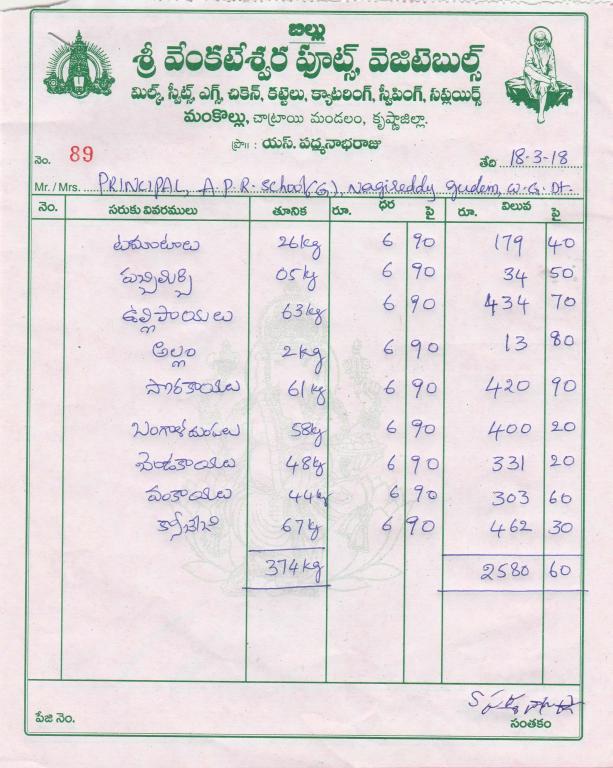 బిల్లు
శ్రీ వేంకటేశ్వర ఫూట్స్, వెజిటెబుల్స్
మిల్క్, స్వీట్స్, ఎగ్స్, చికెన్, కట్టెలు, క్యాటరింగ్, స్వీపింగ్, సప్లయర్స్
మంకొల్లు, చాట్రాయి మండలం, కృష్ణాజిల్లా.
ప్రొ॥ : యస్. పద్మనాభరాజు
నెం. 89 తేది 18-3-18
Mr. / Mrs. PRINCIPAL, A.P.R. School(G), Nagireddy gudem, W.G. Dt.
నెం. సరుకు వివరములు తూనిక రూ. ధర పై రూ. విలువ పై
టమాటాలు 26kg 6 90 179 40
పచ్చిమిర్చి 05kg 6 90 34 50
ఉల్లిపాయలు 63kg 6 90 434 70
అల్లం 2kg 6 90 13 80
సొరకాయలు 61kg 6 90 420 90
బంగాళదుంపలు 58kg 6 90 400 20
బెండకాయలు 48kg 6 90 331 20
వంకాయలు 44kg 6 90 303 60
క్యాబేజి 67kg 6 90 462 30
374kg 2580 60
పేజి నెం. సంతకం